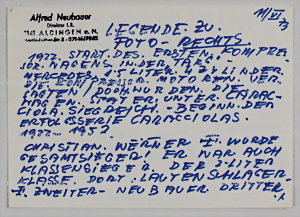 Alfred Neubauer
Direktor i. R.
7141 ALDINGEN a. N.
11/VI
73
LEGENDE ZU.
FOTO - RECHTS.
1922. START DES ERSTEN, KOMPRES
SOR WAGENS IN DER TARGA
MERCEDES 1.5 LITER. 4 ZYL. IN DER
TEN / DOCH WURDEN DIE
WAGEN, SPÄTER UNTER CARAC-
CIOLA, SIEGREICH. BEGINN DER
ERFOLGSSERIE CARACCIOLAS.
1922 1952
CHRISTIAN. WERNER I. WURDE
GESAMTSIEGER! ER WAR AUCH
KLASSENSIEGER DER 2 LITER
KLASSE. DORT. LAUTENSCHLAGER
II. ZWEITER - NEUBAUER DRITTER.